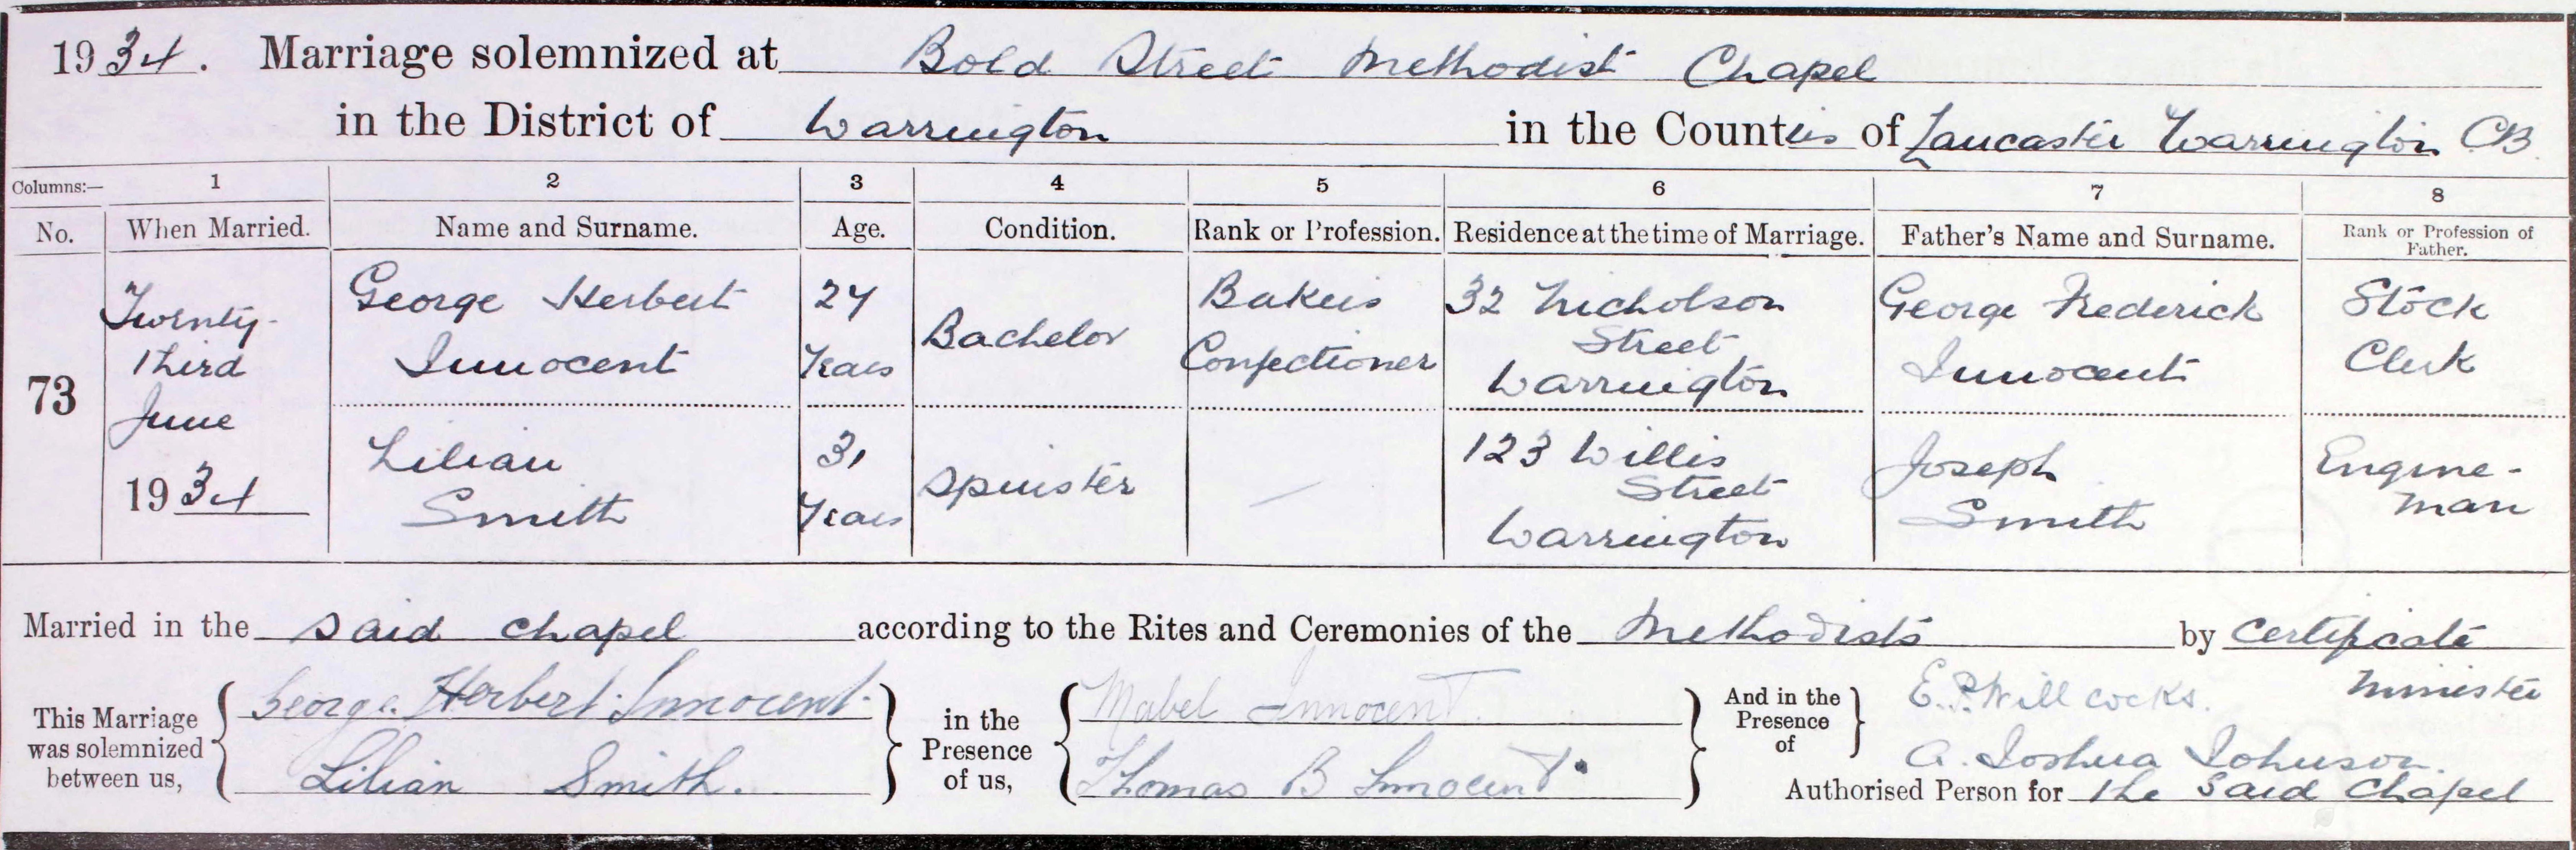 1934. Marriage solemnized at Bold Street Methodist Chapel
in the District of Warrington in the Counties of Lancaster Warrington CB
Columns:— 1 2 3 4 5 6 7 8
No. When Married. Name and Surname. Age. Condition. Rank or Profession. Residence at the time of Marriage. Father's Name and Surname. Rank or Profession of Father.
73
Twenty-
third
June
1934
George Herbert
Innocent
24
Years
Bachelor
Bakers
Confectioner
32 Nicholson
Street
Warrington
George Frederick
Innocent
Stock
Clerk
Lilian
Smith
31
Years
Spinster
—
123 Willis
Street
Warrington
Joseph
Smith
Engine-
man
Married in the said chapel according to the Rites and Ceremonies of the Methodists by Certificate
This Marriage
was solemnized
between us,
George Herbert Innocent.
Lilian Smith.
in the
Presence
of us,
Mabel Innocent.
Thomas B Innocent.
And in the
Presence
of
E. P. Willcocks. Minister
A. Joshua Johnson.
Authorised Person for the said Chapel